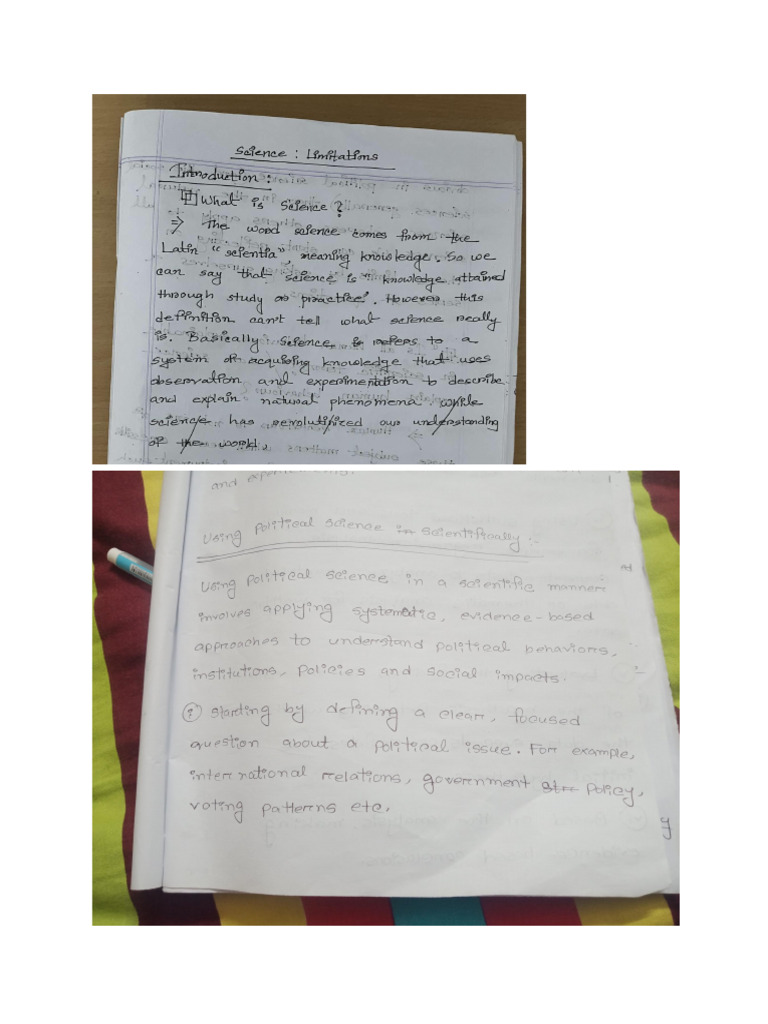 Science : Limitations
Introduction :
What is Science ?
⇒ The word science comes from the
Latin "scientia", meaning knowledge. So we
can say that science is "knowledge attained
through study or practice". However this
definition can't tell what science really
is. Basically Science, is refers to a
system of acquiring knowledge that uses
observation and experimentation to describe
and explain natural phenomena. While
science has revolutinized our understanding
of the world.
and
Using Political science in scientifically :-
Using political science in a scientific manner
involves applying systematic, evidence-based
approaches to understand political behaviors,
institutions, policies and social impacts.
(i) Starting by defining a clear, focused
question about a political issue. For example,
international relations, government policy,
voting patterns etc.